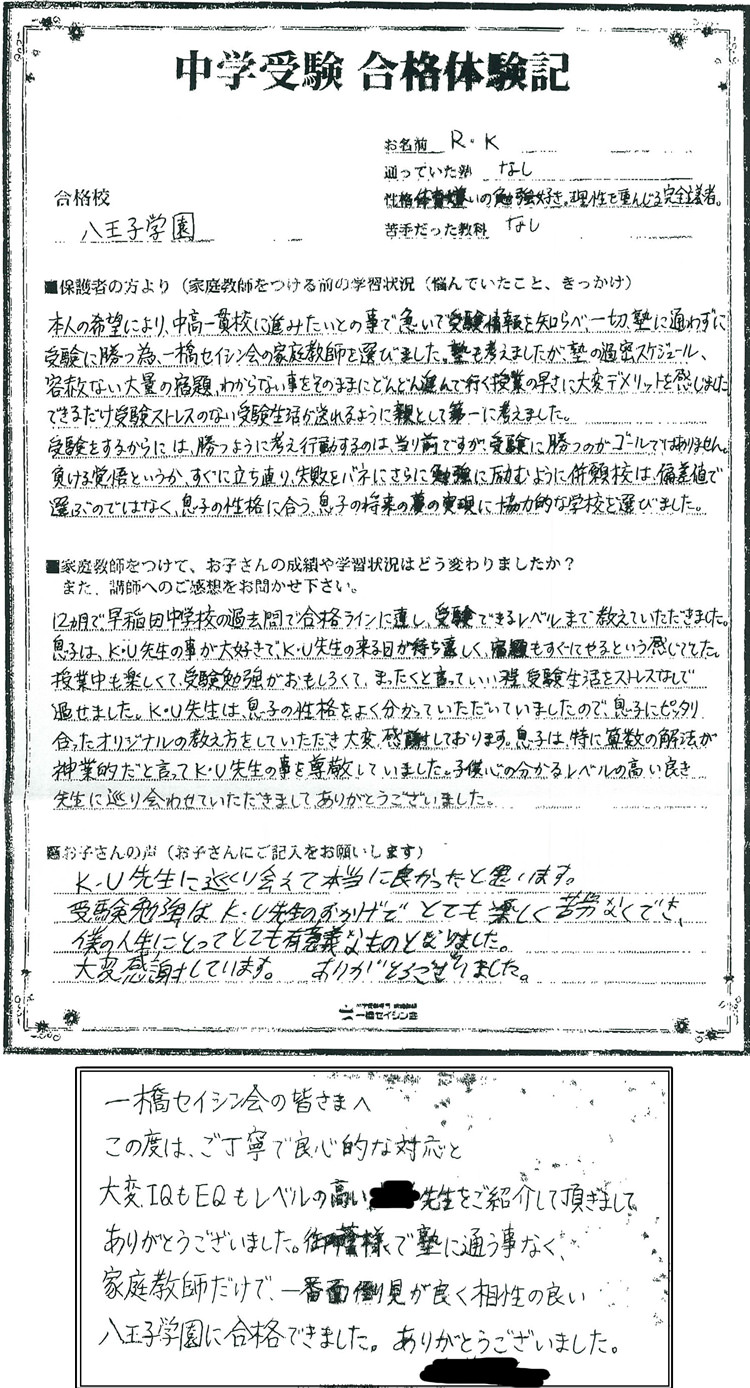 中学受験 合格体験記
お名前 R・K
通っていた塾 なし
性格 体育嫌いの勉強好き。理性を重んじる完全主義者。
苦手だった教科 なし
合格校
八王子学園
■保護者の方より（家庭教師をつける前の学習状況（悩んでいたこと、きっかけ）
本人の希望により、中高一貫校に進みたいとの事で急いで受験情報を知らべ、一切、塾に通わずに
受験に勝つ為、一橋セイシン会の家庭教師を選びました。塾も考えましたが、塾の過密スケジュール、
容赦ない大量の宿題、わからない事をそのままにどんどん進んで行く授業の早さに大変デメリットを感じました
できるだけ受験ストレスのない受験生活が送れるように親として第一に考えました。
受験をするからには、勝つように考え行動するのは、当り前ですが、受験に勝つのがゴールではありません。
負ける覚悟というか、すぐに立ち直り、失敗をバネにさらに勉強に励むように併願校は、偏差値で
選ぶのではなく、息子の性格に合う、息子の将来の夢の実現に協力的な学校を選びました。
■家庭教師をつけて、お子さんの成績や学習状況はどう変わりましたか？
また、講師へのご感想をお聞かせ下さい。
12ヵ月で早稲田中学校の過去問で合格ラインに達し、受験できるレベルまで教えていただきました。
息子は、K・U先生の事が大好きで、K・U先生の来る日が待ち遠しく、宿題もすぐにやるという感じでした。
授業中も楽しくて、受験勉強がおもしろくて、まったくと言っていい程、受験生活をストレスなしで
過せました。K・U先生は、息子の性格をよく分かっていただいていましたので、息子にピッタリ
合ったオリジナルの教え方をしていただき大変、感謝しております。息子は、特に算数の解法が
神業的だと言ってK・U先生の事を尊敬していました。子供心の分かるレベルの高い良き
先生に巡り合わせていただきましてありがとうございました。
■お子さんの声（お子さんにご記入をお願いします）
K・U先生に巡り会えて本当に良かったと思います。
受験勉強は K・U先生のおかげで とても楽しく苦労なくでき、
僕の人生にとってとても有意義なものとなりました。
大変感謝しています。 ありがとうございました。
一橋セイシン会
一橋セイシン会の皆さまへ
この度は、ご丁寧で良心的な対応と
大変IQもEQもレベルの高い 先生をご紹介して頂きまして
ありがとうございました。御蔭様で塾に通う事なく、
家庭教師だけで、一番面倒見が良く相性の良い
八王子学園に合格できました。ありがとうございました。